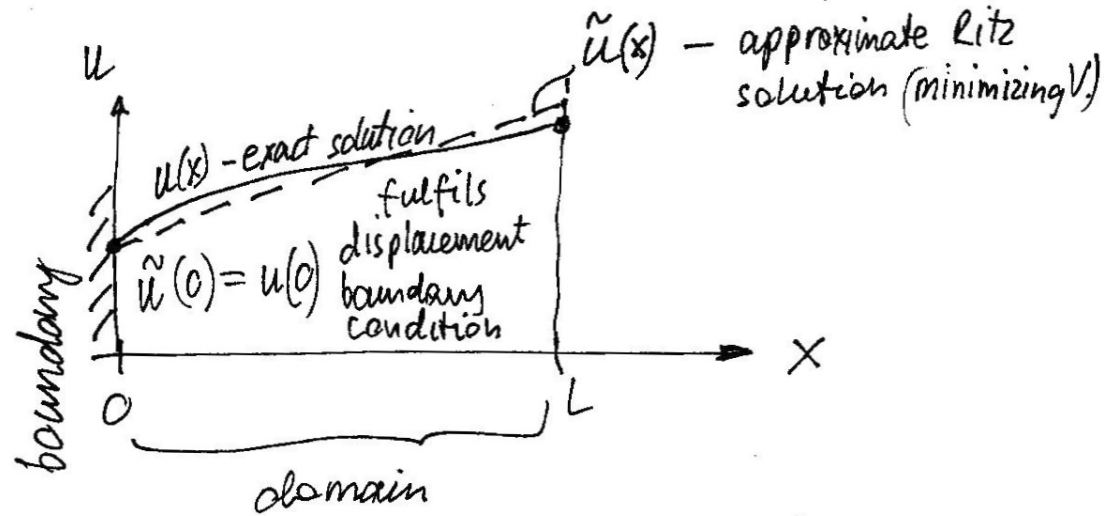 u
ũ(x) – approximate Ritz
solution (minimizing V.)
u(x) – exact solution
fulfils
displacement
boundary
condition
ũ(0) = u(0)
boundary
x
0
L
domain